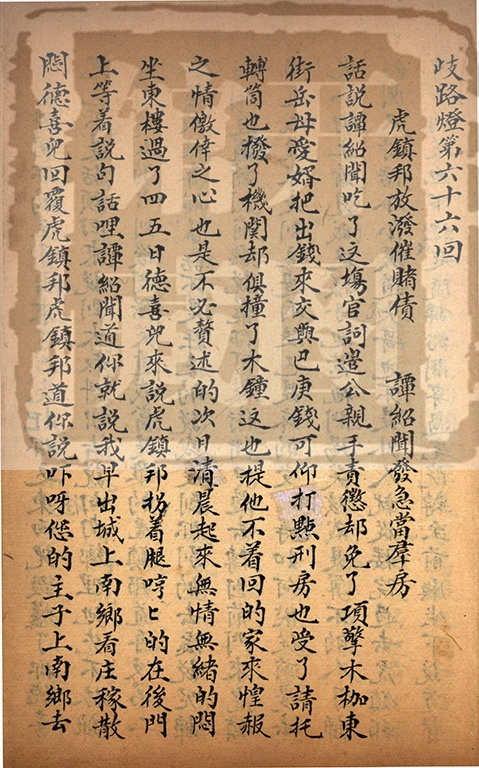 歧路燈第六十六回
虎鎮邦放潑催賭債　譚紹聞發急當羣房
話說譚紹聞吃了這塲官詞邉公親手責懲却免了項擎木枷東
街岳母愛婿把出錢來交與巴庚錢可仰打㸃刑房也受了請托
轉筒也撥了機関却俱撞了木鐘这也提他不着回的家來惶赧
之情儌倖之心也是不必贅述的次日清晨起來無情無緒的悶
坐東樓過了四五日德喜兒來說虎鎮邦拐着腿哼匕的在後門
上等着說句話哩譚紹聞道你就說我早出城上南鄉看庄稼散
悶德喜兒回覆虎鎮邦虎鎮邦道你說吓呀您的主子上南鄉去